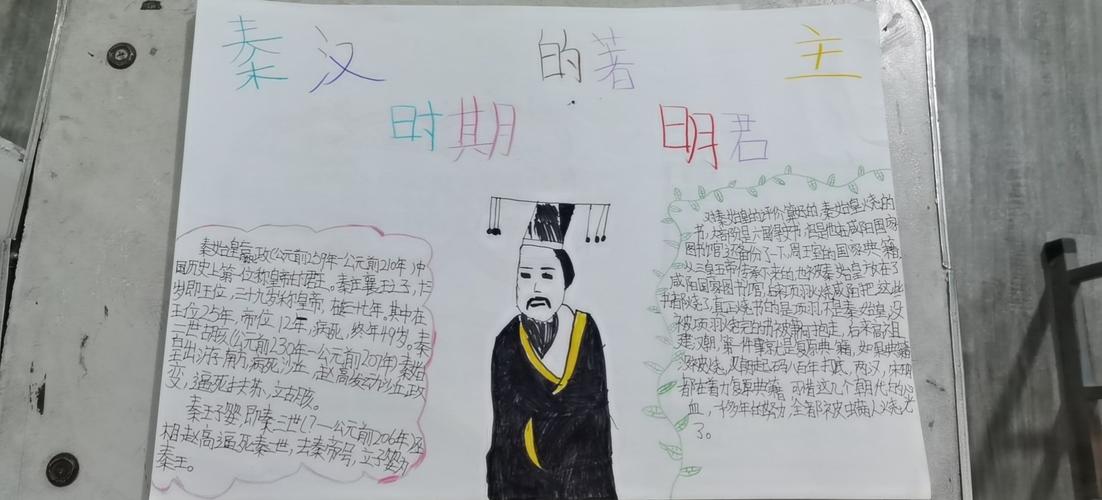 秦汉 的著 主
时期 明君
秦始皇嬴政(公元前259年-公元前210年)中
国历史上第一位称皇帝的君王。秦庄襄王之子,十
岁即王位,三十九岁称皇帝,在位三十七年。其中在
王位25年,帝位12年,病死,终年49岁。秦
二世胡亥(公元前230年-公元前207年)秦始
皇出游南方病死沙丘,赵高发动沙丘政
变,逼死扶苏,立胡亥。
秦王子婴,即秦三世(?-公元前206年)丞
相赵高逼死秦二世,去秦帝号,立子婴为
秦王。
对秦始皇的评价
书,大部分是
图书馆还备份了一下,周王室的国家典籍,
以三皇五帝传承下来的也被秦始皇放在了
咸阳国家图书馆,后来项羽火烧咸阳把这些
书都烧了,真正烧书的是项羽不是秦始皇,没
被项羽烧完的书被萧何抢走,后来高祖
建汉朝,第一件事就是复原典籍,如果典籍
没被烧,八百年打底,两汉,宋明
都在着力复原典籍,可惜这几个朝代的心
血,千多年的努力,全都被满人烧光
了。